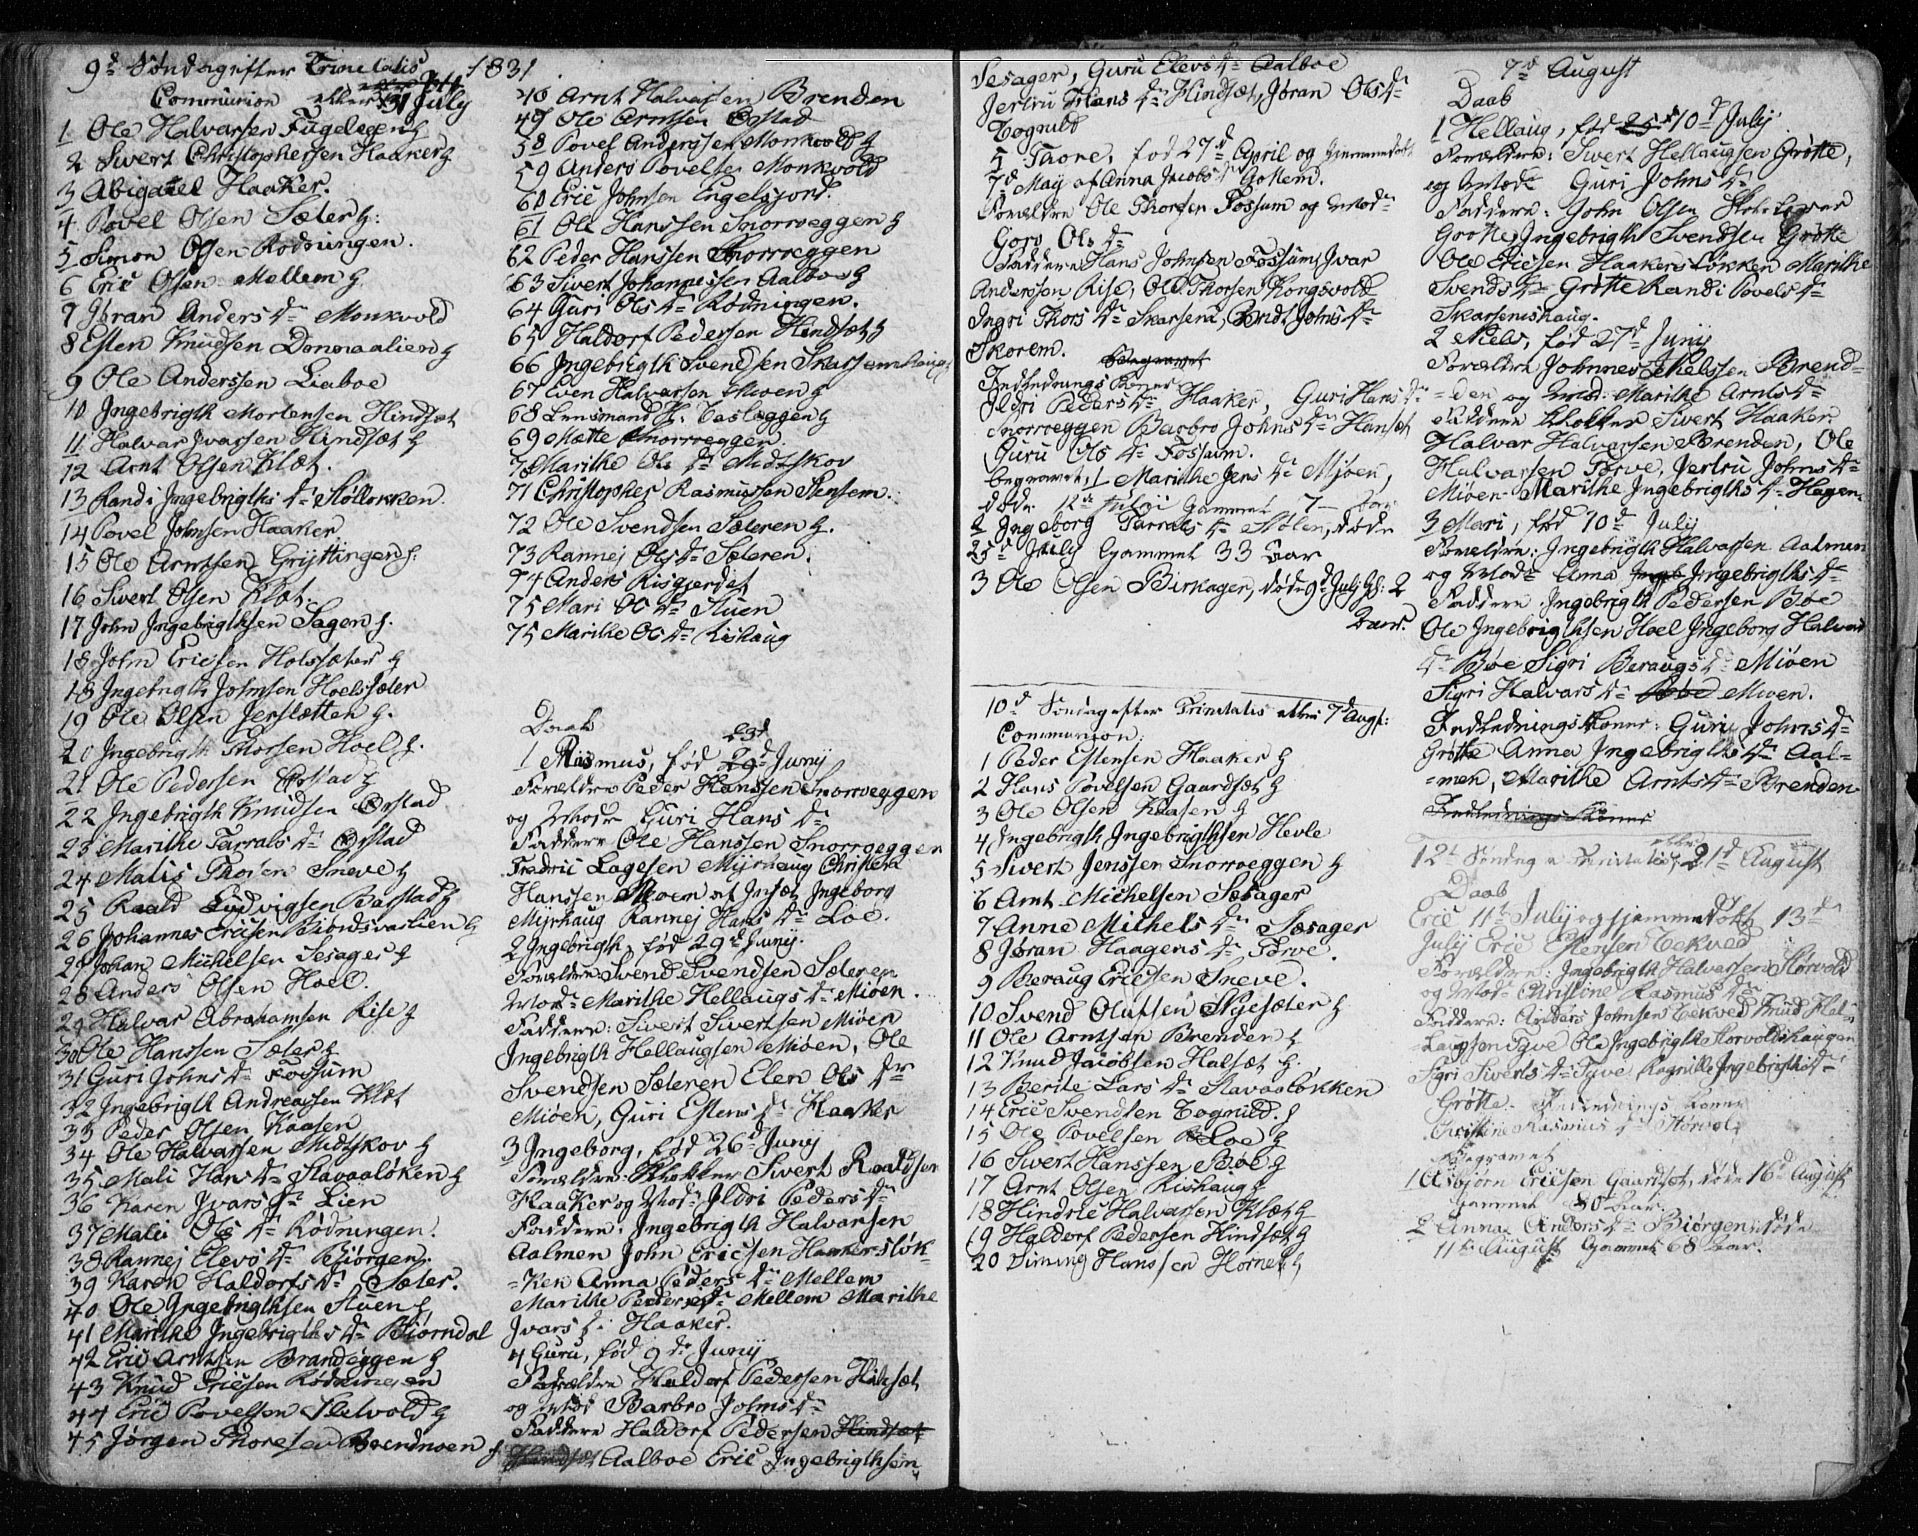 9d Søndag efter Trinitatis 1831
Communion 31 July
1 Ole Halvarsen Fugelegen h
2 Sivert Christophersen Haaker h
3 Abigael Haaker.
4 Povel Olsen Sæter h:
5 Simon Olsen Rødningen.
6 Eric Olsen Mellem h
7 Jøran Anders dr Monkvold
8 Esten Knudsen Donmaalien h
9 Ole Anderssen Liaboe
10 Ingebrigth Mortensen Hindsæt
11 Halvar Ivarssen Hindsæt h
12 Arnt Olsen Klæt.
13 Randi Ingebrigths dr Støllokken.
14 Povel Johnsen Haaker
15 Ole Arntsen Gryttingen h.
16 Sivert Olsen Klæt.
17 John Ingebrigthsen Sagen h.
18 John Ericsen Holssæter h
18 Ingebrigth Johnsen Hoelssæter
19 Ole Olsen Jerslætten h.
20 Ingebrigth Thorsen Hoel h.
21 Ole Pedersen h
22 Ingebrigth Knudsen Ørstad
23 Marithe Tarrals dr Ørstad
24 Matis Thorsen Sneve h
25 Roald Ludvigsen Barstad h
26 Johannes Ericsen h
27 Johan Michelsen Sesager h
28 Anders Olsen Hoel.
29 Halvar Abrahamsen Rise h
30 Ole Hanssen Sæter h
31 Guri Johns dr Fossum
32 Ingebrigth Andreassen Klæt
33 Peder Olsen Kaasen
34 Ole Halvarsen Midtskov h
35 Mali Hans dr Stavaaløken h
36 Karen Ivars dr Lien
37 Mali Ols dr Rødningen.
38 Rannej Elevs dr Biørgen
39 Karen Haldorfs dr Sæter.
40 Ole Ingebrigthsen Stuen h
41 Marithe Ingebrigths dr Biørndal
42 Eric Arntsen Brandeggen h
43 Knud Ericsen Rødningen
44 Eric Povelsen h
45 Jørgen Thoresen h
48 Arnt Halvarsen Brenden
49 Ole Arntsen Ørstad
58 Povel Anderssen Monkvold h
59 Anders Povelsen Monkvold
60 Eric Johnsen Engelsjord.
61 Ole Hanssen Snorroeggen h
62 Peder Hanssen Snorroeggen
63 Sivert Johannessen Aalboe h
64 Guri Ols dr Rødningen.
65 Haldorf Pedersen Hindsæt h
66 Ingebrigth Svendsen Skarsemshaug
67 Even Halvarsen Moen h
68 Lensmand H. Vesleggen h
69 Mætte Snorroeggen.
70 Marithe Ols dr Midtskov
71 Christopher Rasmussen Stensem.
72 Ole Svendsen Sæteren h.
73 Rannej Ols dr Sæteren.
74 Anders Risgjerdet
75 Mari Ols dr Stuen
75 Marithe Ols dr Rishaug
Daab 23d
1 Rasmus, fød 29d Junij
Forældre Peder Hanssen Snorroeggen
og Moder Guri Hans dr
Faddere Ole Hanssen Snorroeggen
Fredric Lagesen Myrhaug Christen
Hanssen Moen af Insæt Ingeborg
Myrhaug Rannej Hans dr Loe.
2 Ingebrigth, fød 29d Junij.
Forældre Svend Svendsen Sæteren
Moder Marithe Hellaugs dr Miøen.
Faddere: Sivert Sivertsen Miøen
Ingebrigth Hellaugsen Miøen, Ole
Svendsen Sæteren Elen Ols dr
Miøen, Guri Estens dr Haaker
3 Ingeborg, fød 26d Junij
Forældre: Klokker Sivert Roaldsen
Haaker og Mod. Ildri Peders dr
Faddere: Ingebrigth Halvarsen
Aalmen John Ericsen Haakersløk-
-ken Anna Peders dr Mellem
Marithe Peders dr Mellem Marithe
Ivars dr Haaker.
4 Guru, fød 9d Junij
Forældre Haldorf Pedersen Hindsæt
og Mod Barbro Johns dr
Faddere Haldorf Pedersen Hindsæt
Hindset Aalboe Eric Ingebrigthsen
Sesager, Guru Elevs dr Aalboe
Jertru Hans dr Hindsæt, Jøran Ols dr
Togvild
5 Thore, fød 27d April og hjemmedøbt
7d May af Anna Jacobs dr
Forældre Ole Thorsen Fossum og Moder
Goro Ols dr
Faddere Hans Johnsen Fossum, Ivar
Anderssen Rise, Ole Thorsen Kongsvold
Ingri Thors dr Skarsem, Johns dr
Skorem. Begravet
Indlednings Koner
Ildri Peders dr Haaker, Guri Hans dr
Snorroeggen Barbro Johns dr Hansæt
Guru Ols dr Fossum.
begravet, 1 Marithe Jens dr Mjøen,
døde 12te Juli Gammel 7
2 Ingeborg Tarrals dr Stølen, døde
25d July Gammel 33 Aar
3 Ole Olsen Birkager, døde 9d July Gl: 2
Aar.
10d Søndag efter Trinitatis 7d Augst:
Communion:
1 Peder Estensen Haaker h
2 Hans Povelsen Gaardsæt h
3 Ole Olsen Kaasen h
4 Ingebrigth Ingebrigthsen Hevle
5 Sivert Jenssen Snorroeggen h
6 Arnt Michelsen Sæsager
7 Anne Michels dr Sæsager
8 Jøran Haagens dr Torve.
9 Beraug Ericsen Sneve.
10 Svend Olufsen Nyesæter h
11 Ole Arntsen Brenden h
12 Knud Jacobsen Halsæt h.
13 Berite Lars dr Stavaaløkken
14 Eric Svendsen Togvild. h
15 Ole Povelsen Loe h
16 Sivert Hanssen Bøe h
17 Arnt Olsen Rishaug h
18 Hindric Halvarsen Klæt h
19 Haldorf Pedersen Hindsæt h
20 Hanssen Hornet h
7d August
Daab
1 Hellaug, fød 25 10d July
Forældre: Sivert Hellaugsen Grøtte,
og Mod Guri Johns dr
Faddere: John Olsen
Grøtte, Ingebrigth Svendsen Grøtte
Ole Ericsen Haakersløkken Marithe
Svends dr Grøtte Randi Povels dr
Skarsemshaug.
2 Niels, fød 27d Junij
Forældre Johnnes Nielssen Brend-
-den og Mod: Marithe Arnts dr
Faddere Klokker Sivert Haaker
Halvar Halvarsen Brenden, Ole
Halvarsen Torve, Jertru Johns dr
Miøen Marithe Ingebrigths dr Hagen.
3 Mari, fød 10d July
Forældre: Ingebrigth Halvarsen Aalmen
og Mod Anna Ingebrigths dr
Faddere: Ingebrigth Pedersen Bøe
Ole Ingebrigthsen Hoel Ingeborg Halvars
dr Bøe Sigri Beraugs dr Miøen
Sigri Halvars dr Moen.
Indlednings Koner: Guri Johns dr
Grøtte Anna Ingebrigths dr Aal-
-men, Marithe Arnts dr Brenden.
Indlednings Koner
12t Søndag e Trinitatis, 21d August
Daab
Eric 11t July og hjemmedøbt 13d
July Eric Estensen Tekved
Forældre: Ingebrigth Halvarsen Storvold
og Mod Christine Rasmus dr
Faddere: Anders Johnsen Tekved Knud Hel-
laugsen Tyve Ole Ingebrigth Storvoldshaugen
Sigri Siverts dr Tyve Ragnild Ingebrigths dr
Grøtte. Indlednings Koner
Christine Rasmus dr Storvold
Begravet
1 Asbjørn Ericsen Gaardsæt, døde 16d August
Gammel 80 Aar.
2 Anna Anders dr Biørgen døde
11te August Gammel 68 Aar.